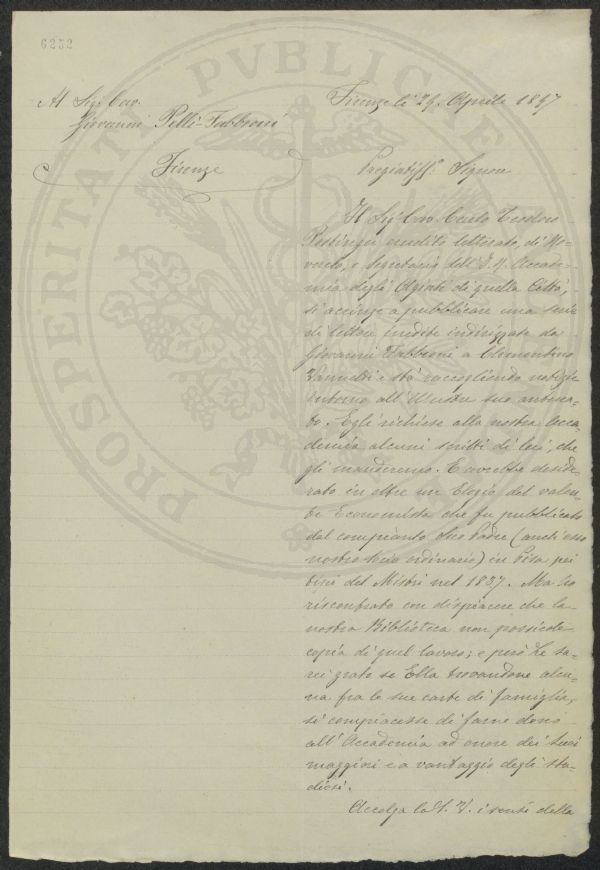 6232
Al Sig. Cav.
Giovanni Pelli-Fabbroni
Firenze
Firenze li 29. Aprile 1897
Pregiatiss. Signore
Il Sig. Cav. Carlo Teodoro
Postinger erudito letterato, di Ro-
vereto, e Segretario dell'I. R. Accade-
mia degli Agiati di quella Città,
si accinge a pubblicare una serie
di lettere inedite indirizzate da
Giovanni Fabbroni a Clementino
Vannetti e stà raccogliendo notizie
intorno all'illustre suo antena-
to. Egli richiese alla nostra Acca-
demia alcuni scritti di lui, che
gli manderemo. E avrebbe deside-
rato in oltre un Elogio del valen-
te Economista che fu pubblicato
dal compianto suo Padre (anch'esso
nostro socio ordinario) in Pisa pei
tipi del Nistri nel 1837. Ma ho
riscontrato con dispiacere che la
nostra Biblioteca non possiede
copia di quel lavoro; e però Le sa-
rei grato se Ella trovandone alcu-
na fra le sue carte di famiglia,
si compiacesse di farne dono
all'Accademia ad onore dei suoi
maggiori e a vantaggio degli stu-
diosi.
Accolga la S. V. i sensi della
PROSPERITATI PVBLICAE A